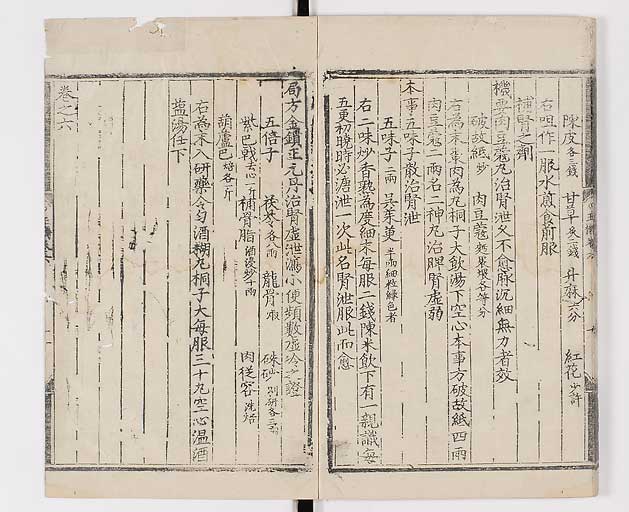 陳皮各二錢 甘草炙二錢 升麻六分 紅花少許
右㕮咀作一服水煎食前服
補腎之劑
機要肉豆蔻丸治腎泄久不愈脉沉細無力者效
破故紙炒 肉豆蔻麪裹煨各等分
右為末棗肉為丸桐子大飲湯下空心本事方破故紙四兩
肉豆蔻二兩名二神丸治脾腎虛弱
本事五味子散治腎泄
五味子二兩 吳茱萸半兩細粒綠色者
右二味炒香熟為度細末每服二錢陳米飲下有一親識每
五更初曉時必溏泄一次此名腎泄服此而愈
局方金鎖正元丹治腎虛泄瀉小便頻數虛冷之證
五倍子 茯苓各八兩 龍骨煅 硃砂別研各三兩
紫巴戟去心一斤 補骨脂酒浸炒十兩 肉從容洗焙
葫蘆巴焙各一斤
右為末入研藥令勻酒糊丸桐子大每服三十丸空心溫酒
塩湯任下
卷之六